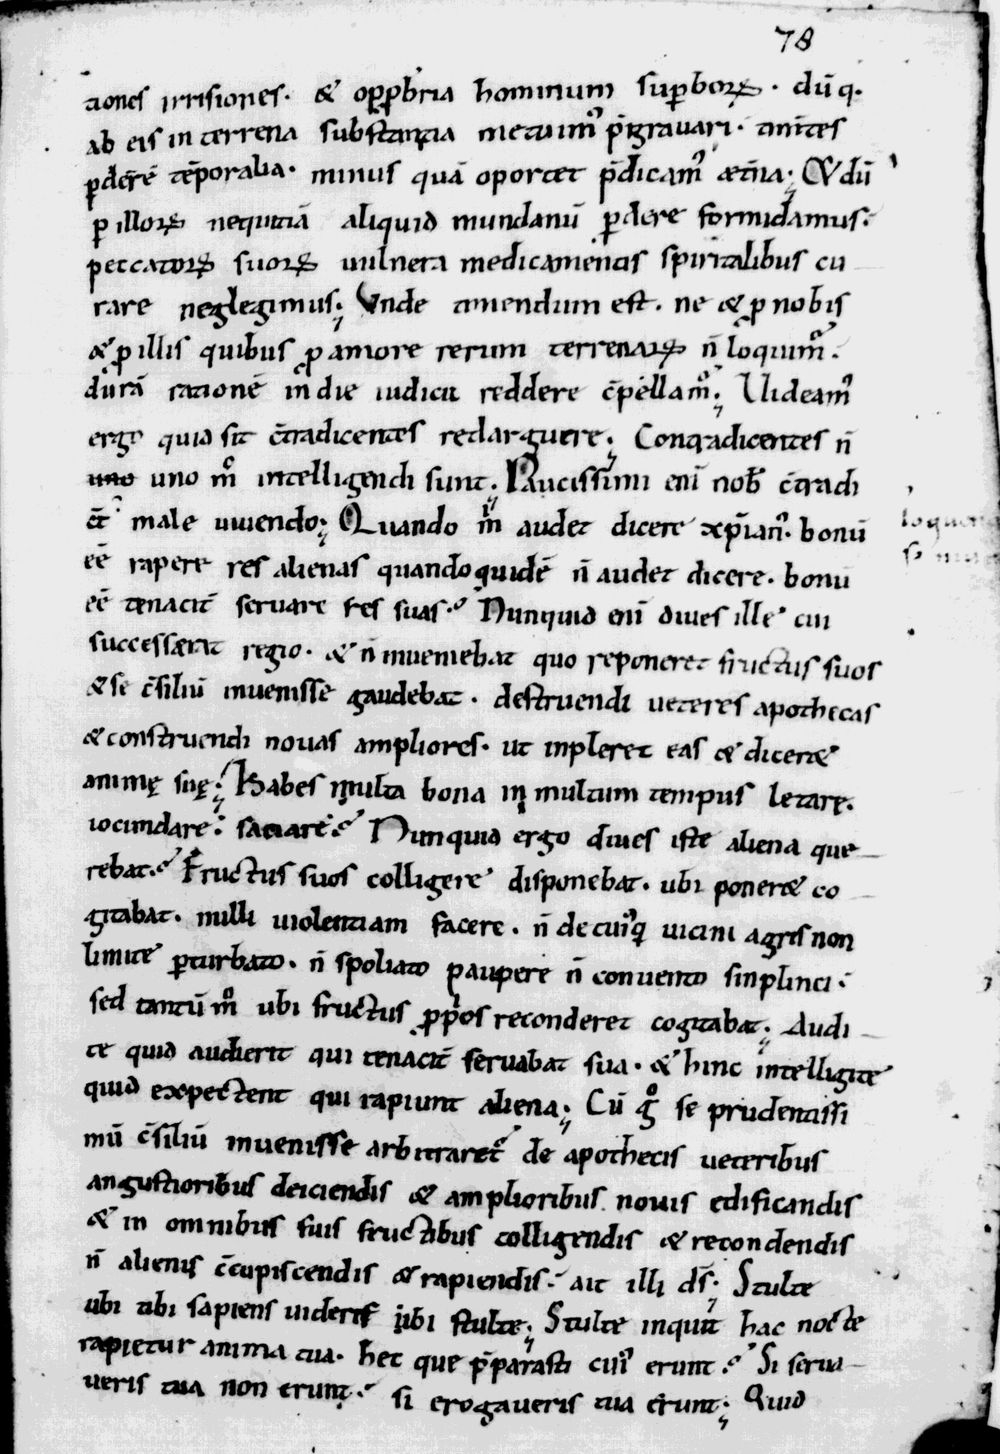 78
tiones irrisiones. & opp̱bria hominum sup̱borꝝ. dūq.
ab eis in terrena substantia metuim᷒ p̄grauari. tim̄tes
ꝑdere tēporalia. minus quā oportet p̄dicam᷒ æt̄na; & dū
ꝑ illorꝝ nequitiā aliquid mundanū ꝑdere formidamus.
peccatorꝝ suorꝝ uulnera medicamentis spiritalibus cu
rare neglegimus; Vnde timendum est. ne & ꝓ nobis
& ꝓ illis quibus ꝓ amore rerum terrenarꝝ n̄ loquim᷒.
durā rationē in die iudicii reddere c̄pellam᷒; Uideam᷒
ergo quid sit c̄tradicentes redarguere; Contradicentes n̄
uno uno m̊ intelligendi sunt; Paucissimi enī nob̄ c̄tradi
c̄t male uiuendo; Quando in̄ audet dicere xp̄ian᷒. bonū
eē rapere res alienas quandoquidē n̄ audet dicere. bonū
eē tenacit̄ seruare res suas. Nunquid enī diues ille cui
successerat regio. & n̄ inueniebat quo reponeret fructus suos
& se c̄siliū inuenisse gaudebat. destruendi ueteres apothecas
& construendi nouas ampliores. ut inpleret eas & diceret
animę suę; Habes multa bona in multum tempus letare.
iocundare. satiare. Nunquid ergo diues iste aliena que
rebat. Fructus suos colligere disponebat. ubi poneret co
gitabat. nulli uiolentiam facere. n̄ de cui᷒q uicini agris non
limite ꝑturbato. n̄ spoliato paupere n̄ conuento sinplici.
sed tantū m̊ ubi fructus ꝓp̱os reconderet cogitabat; Audi
te quid audierit qui tenacit̄ seruabat sua. & hinc intelligite
quid expectent qui rapiunt aliena; Cū g̊ se prudentissi
mū c̄siliū inuenisse arbitraret᷒ de apothecis ueteribus
angustioribus deiciendis & amplioribus nouis edificandis
& in omnibus suis fructibus colligendis & recondendis
n̄ alienis c̄cupiscendis & rapiendis. ait illi ds̄; Stulte
ubi tibi sapiens uideris ibi stulte; Stulte inquit hac nocte
rapietur anima tua. hec que p̄parasti cui᷒ erunt. Si serua
ueris tua non erunt. si erogaueris tua erunt; Quid